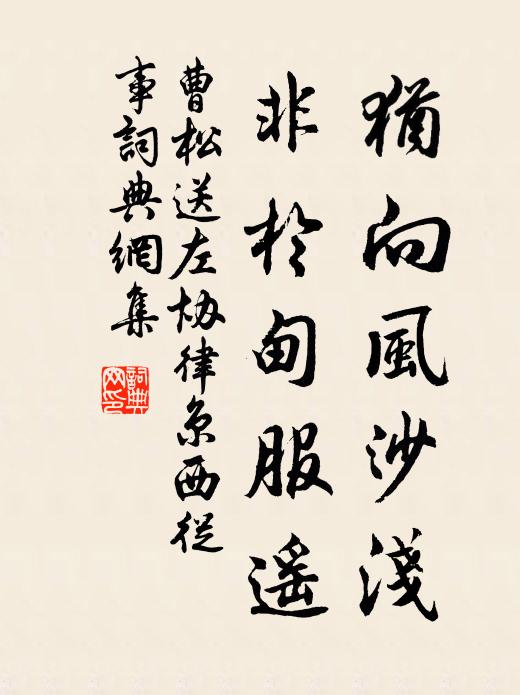 猶向風沙淺
非於甸服遥
曹松送左協律京西從
事詞典網集
詞典網印